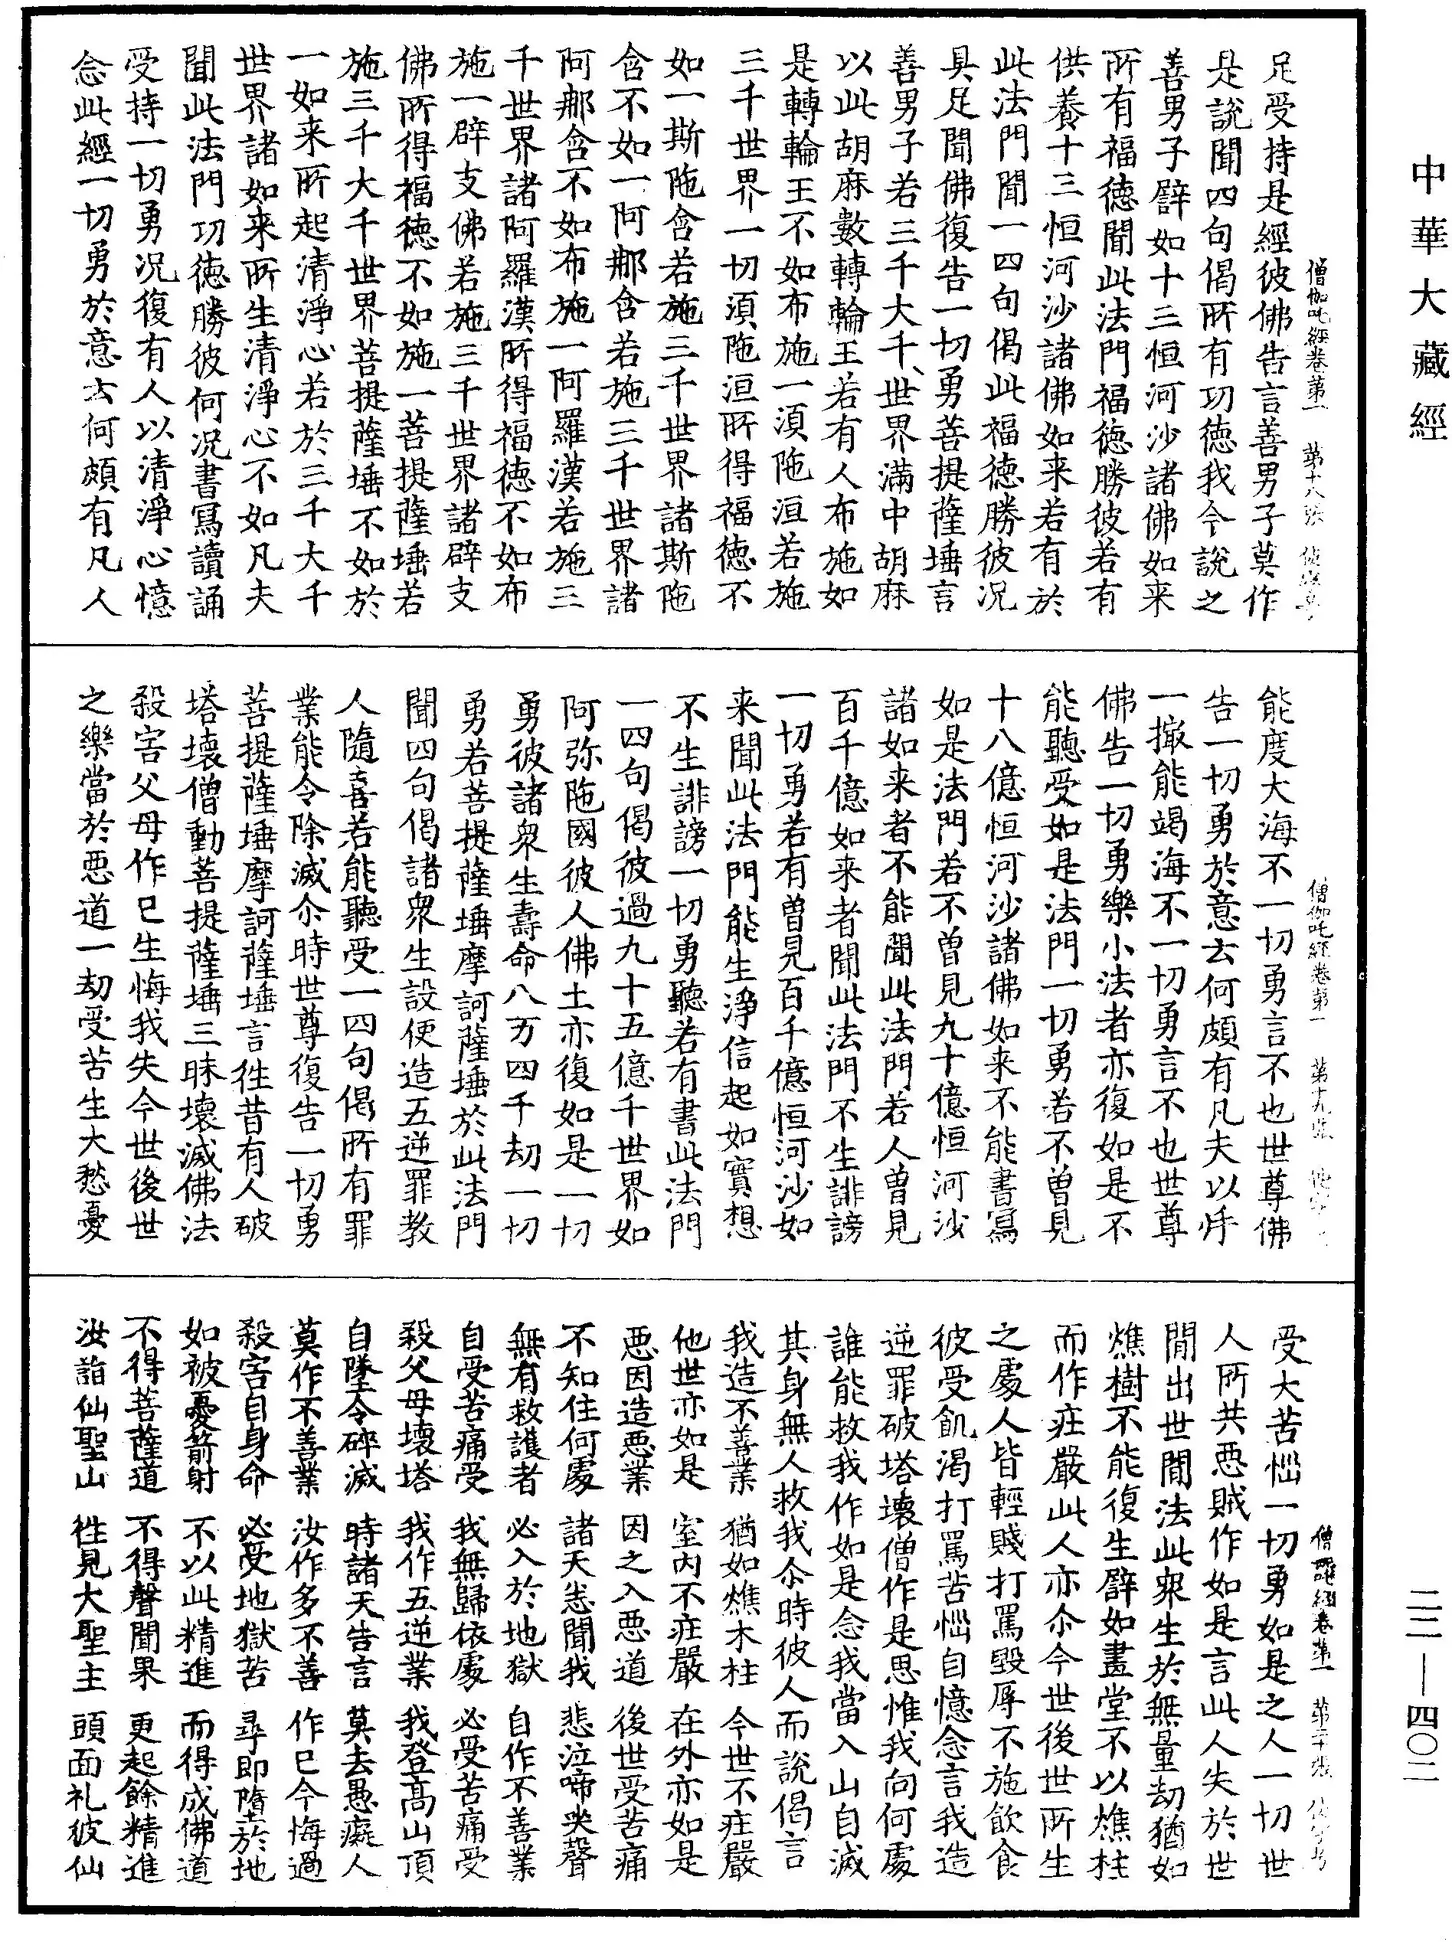 中華大藏經
僧伽吒經卷第一　第十八張
足受持是經彼佛告言善男子莫作
是說聞四句偈所有功德我今說之
善男子譬如十三恒河沙諸佛如来
所有福德聞此法門福德勝彼若有
供養十三恒河沙諸佛如来若有於
此法門聞一四句偈此福德勝彼況
具足聞佛復告一切勇菩提薩埵言
善男子若三千大千世界滿中胡麻
以此胡麻數轉輪王若有人布施如
是轉輪王不如布施一須陁洹若施
三千世界一切須陁洹所得福德不
如一斯陁含若施三千世界諸斯陁
含不如一阿那含若施三千世界諸
阿那含不如布施一阿羅漢若施三
千世界諸阿羅漢所得福德不如布
施一辟支佛若施三千世界諸辟支
佛所得福德不如施一菩提薩埵若
施三千大千世界菩提薩埵不如於
一如来所起清淨心若於三千大千
世界諸如来所生清淨心不如凡夫
聞此法門功德勝彼何況書寫讀誦
受持一切勇況復有人以清淨心憶
念此經一切勇於意云何頗有凡人
僧伽吒經卷第一　第十九張
能度大海不一切勇言不也世尊佛
告一切勇於意云何頗有凡夫以手
一撮能竭海不一切勇言不也世尊
佛告一切勇樂小法者亦復如是不
能聽受如是法門一切勇若不曾見
十八億恒河沙諸佛如来不能書寫
如是法門若不曾見九十億恒河沙
諸如来者不能聞此法門若人曾見
百千億如来者聞此法門不生誹謗
一切勇若有曾見百千億恒河沙如
来聞此法門能生淨信起如實想
不生誹謗一切勇聽若有書此法門
一四句偈彼過九十五億千世界如
阿弥陁國彼人佛土亦復如是一切
勇彼諸衆生壽命八万四千劫一切
勇若菩提薩埵摩訶薩埵於此法門
聞四句偈諸衆生設使造五逆罪教
人隨喜若能聽受一四句偈所有罪
業能令除滅尒時世尊復告一切勇
菩提薩埵摩訶薩埵言往昔有人破
塔壞僧動菩提薩埵三昧壞滅佛法
殺害父母作已生悔我失今世後世
之樂當於惡道一劫受苦生大愁憂
僧伽吒經卷第一　第二十張
受大苦惱一切勇如是之人一切世
人所共惡賊作如是言此人失於世
間出世間法此衆生於無量劫猶如
燋樹不能復生譬如畫堂不以燋柱
而作莊嚴此人亦尒今世後世所生
之處人皆輕賤打罵毀辱不施飲食
彼受飢渴打罵苦惱自憶念言我造
逆罪破塔壞僧作是思惟我向何處
誰能救我作如是念我當入山自滅
其身無人救我尒時彼人而說偈言
我造不善業　猶如燋木柱　今世不莊嚴
他世亦如是　室內不莊嚴　在外亦如是
惡因造惡業　因之入惡道　後世受苦痛
不知住何處　諸天悉聞我　悲泣啼哭聲
無有救護者　必入於地獄　自作不善業
自受苦痛受　我無歸依處　必受苦痛受
殺父母壞塔　我作五逆業　我登高山頂
自墜令碎滅　時諸天告言　莫去愚癡人
莫作不善業　汝作多不善　作已今悔過
殺害自身命　必受地獄苦　尋即墮於地
如被憂箭射　不以此精進　而得成佛道
不得菩薩道　不得聲聞果　更起餘精進
汝詣仙聖山　往見大聖主　頭面礼彼仙
二二—四〇二